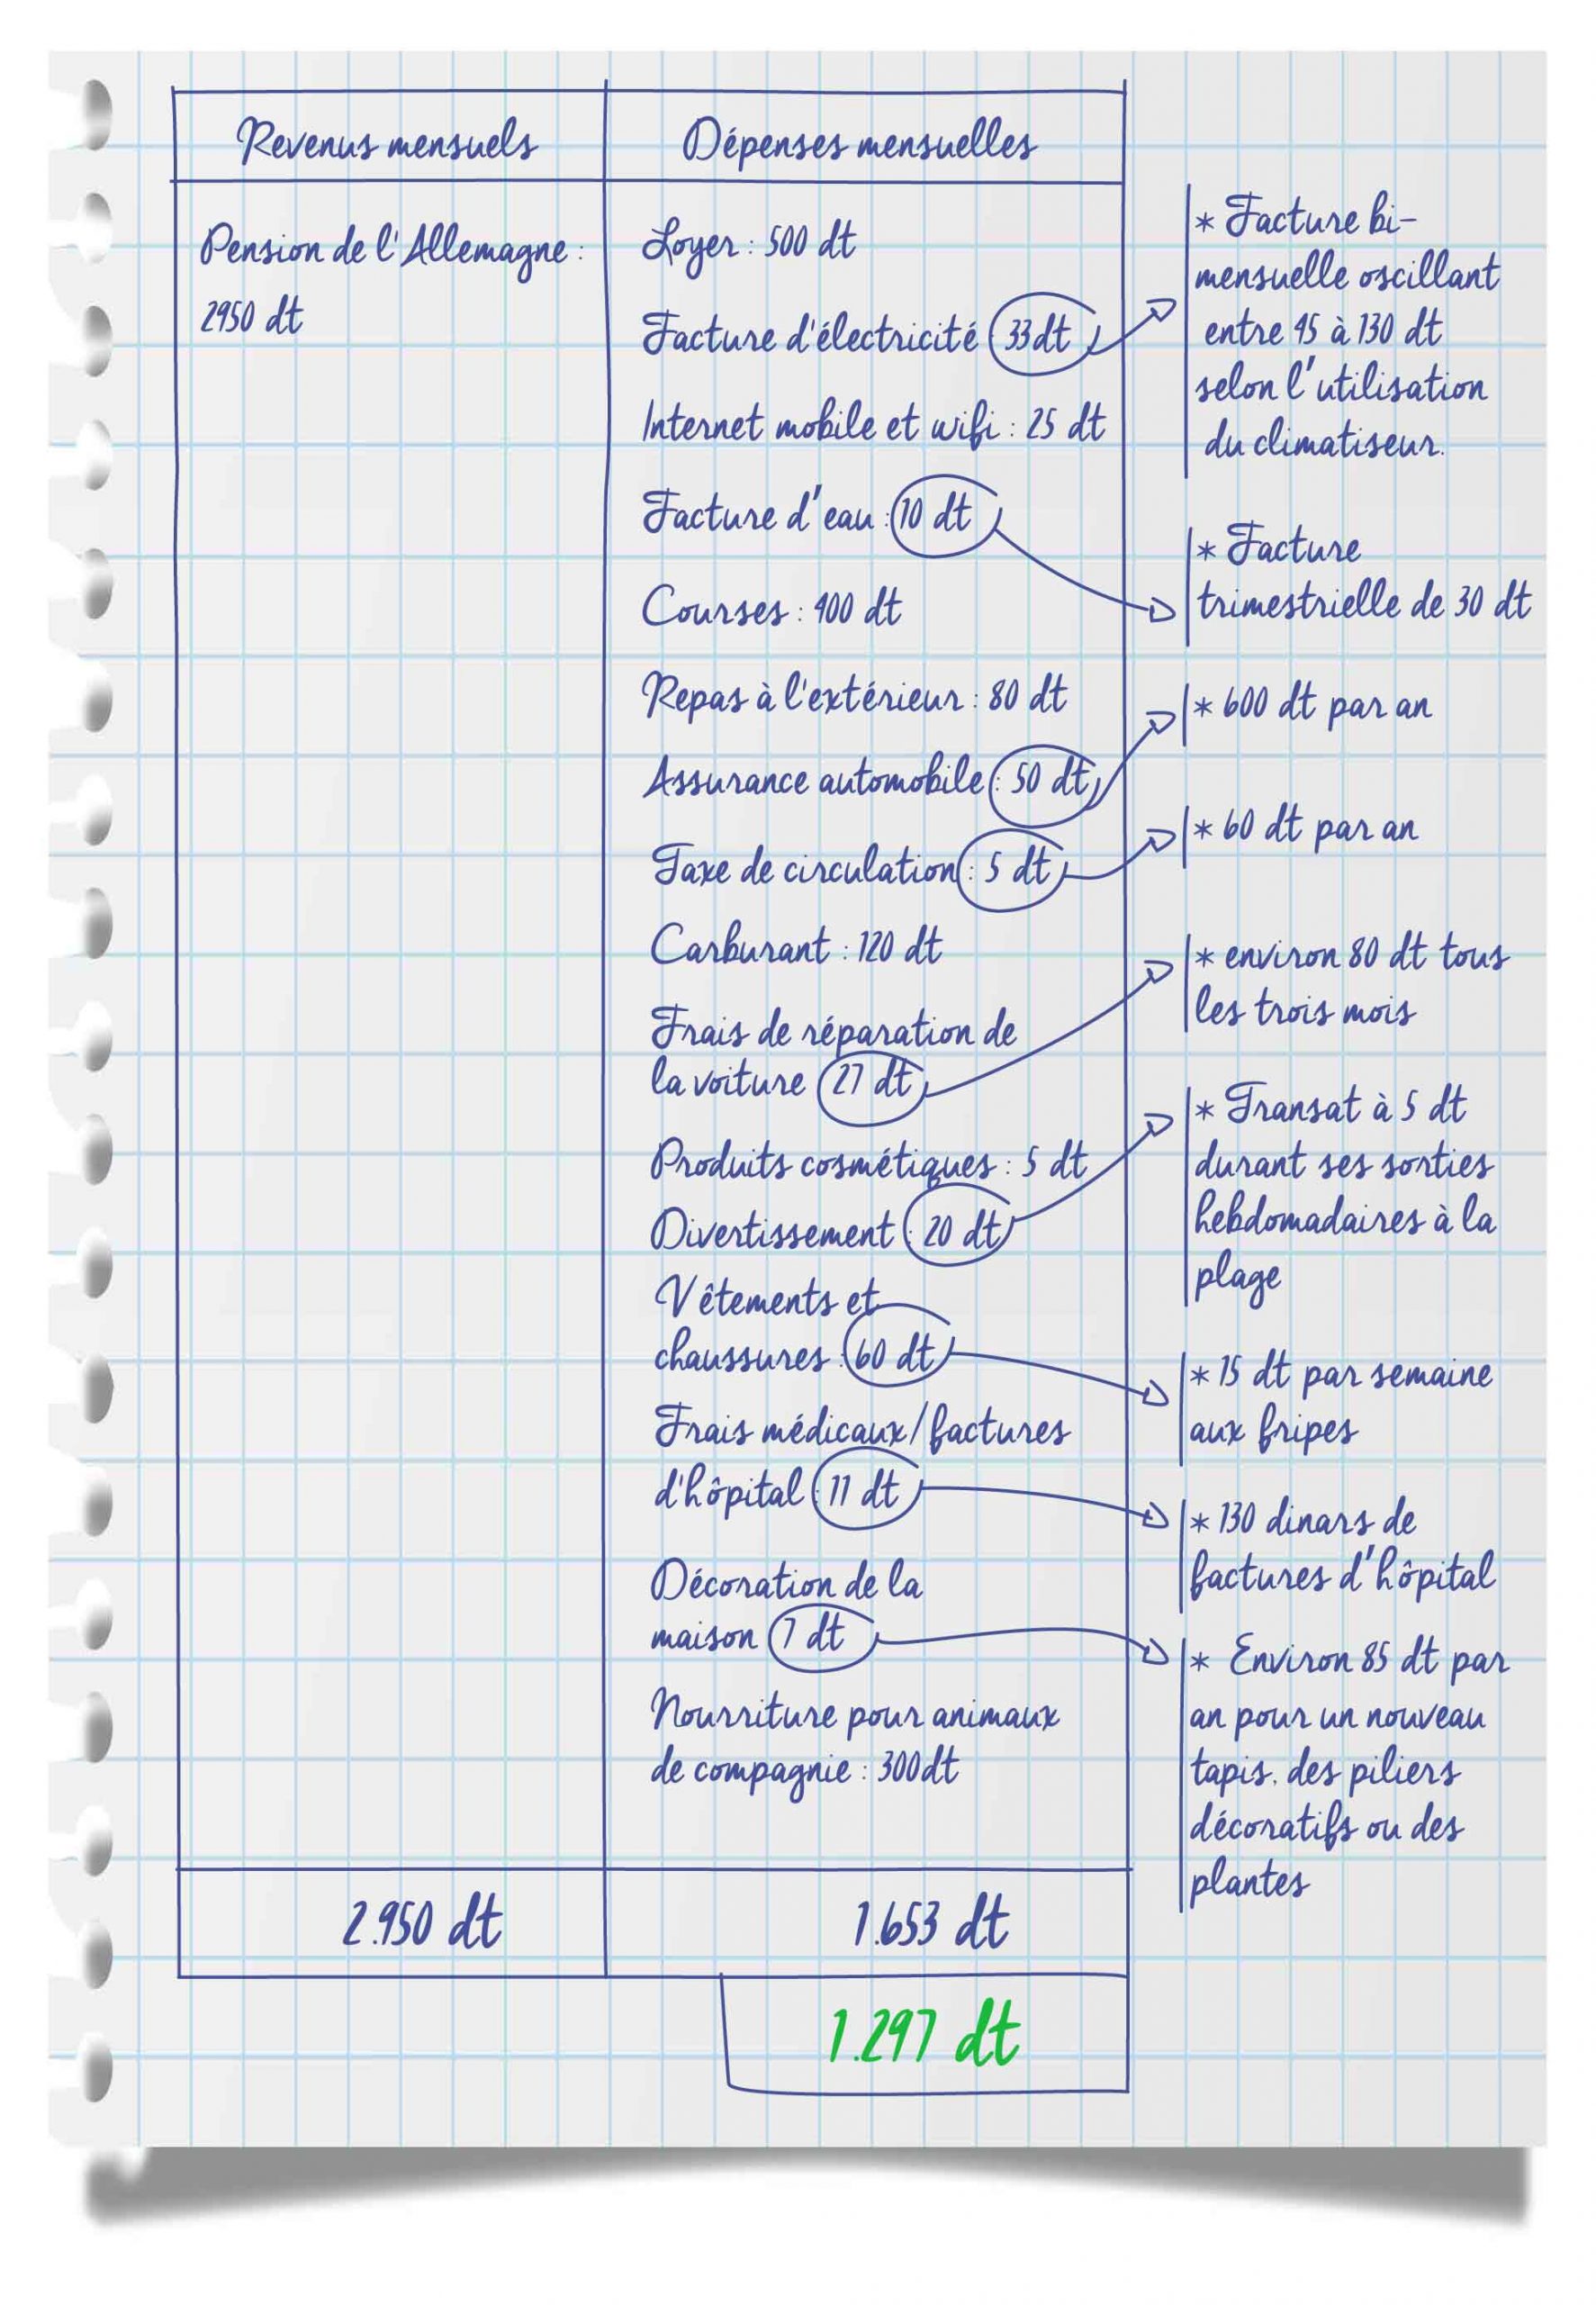 Revenus mensuels
Dépenses mensuelles
Pension de l'Allemagne :
2950 dt
Loyer : 500 dt
Facture d'électricité : 33dt
Internet mobile et wifi : 25 dt
Facture d'eau : 10 dt
Courses : 400 dt
Repas à l'extérieur : 80 dt
Assurance automobile : 50 dt
Taxe de circulation : 5 dt
Carburant : 120 dt
Frais de réparation de
la voiture 27 dt
Produits cosmétiques : 5 dt
Divertissement : 20 dt
Vêtements et
chaussures : 60 dt
Frais médicaux/factures
d'hôpital : 11 dt
Décoration de la
maison 7 dt
Nourriture pour animaux
de compagnie : 300dt
* Facture bi-
mensuelle oscillant
entre 45 à 130 dt
selon l'utilisation
du climatiseur.
* Facture
trimestrielle de 30 dt
* 600 dt par an
* 60 dt par an
* environ 80 dt tous
les trois mois
* Transat à 5 dt
durant ses sorties
hebdomadaires à la
plage
* 15 dt par semaine
aux fripes
* 130 dinars de
factures d'hôpital
* Environ 85 dt par
an pour un nouveau
tapis, des piliers
décoratifs ou des
plantes
2.950 dt
1.653 dt
1.297 dt